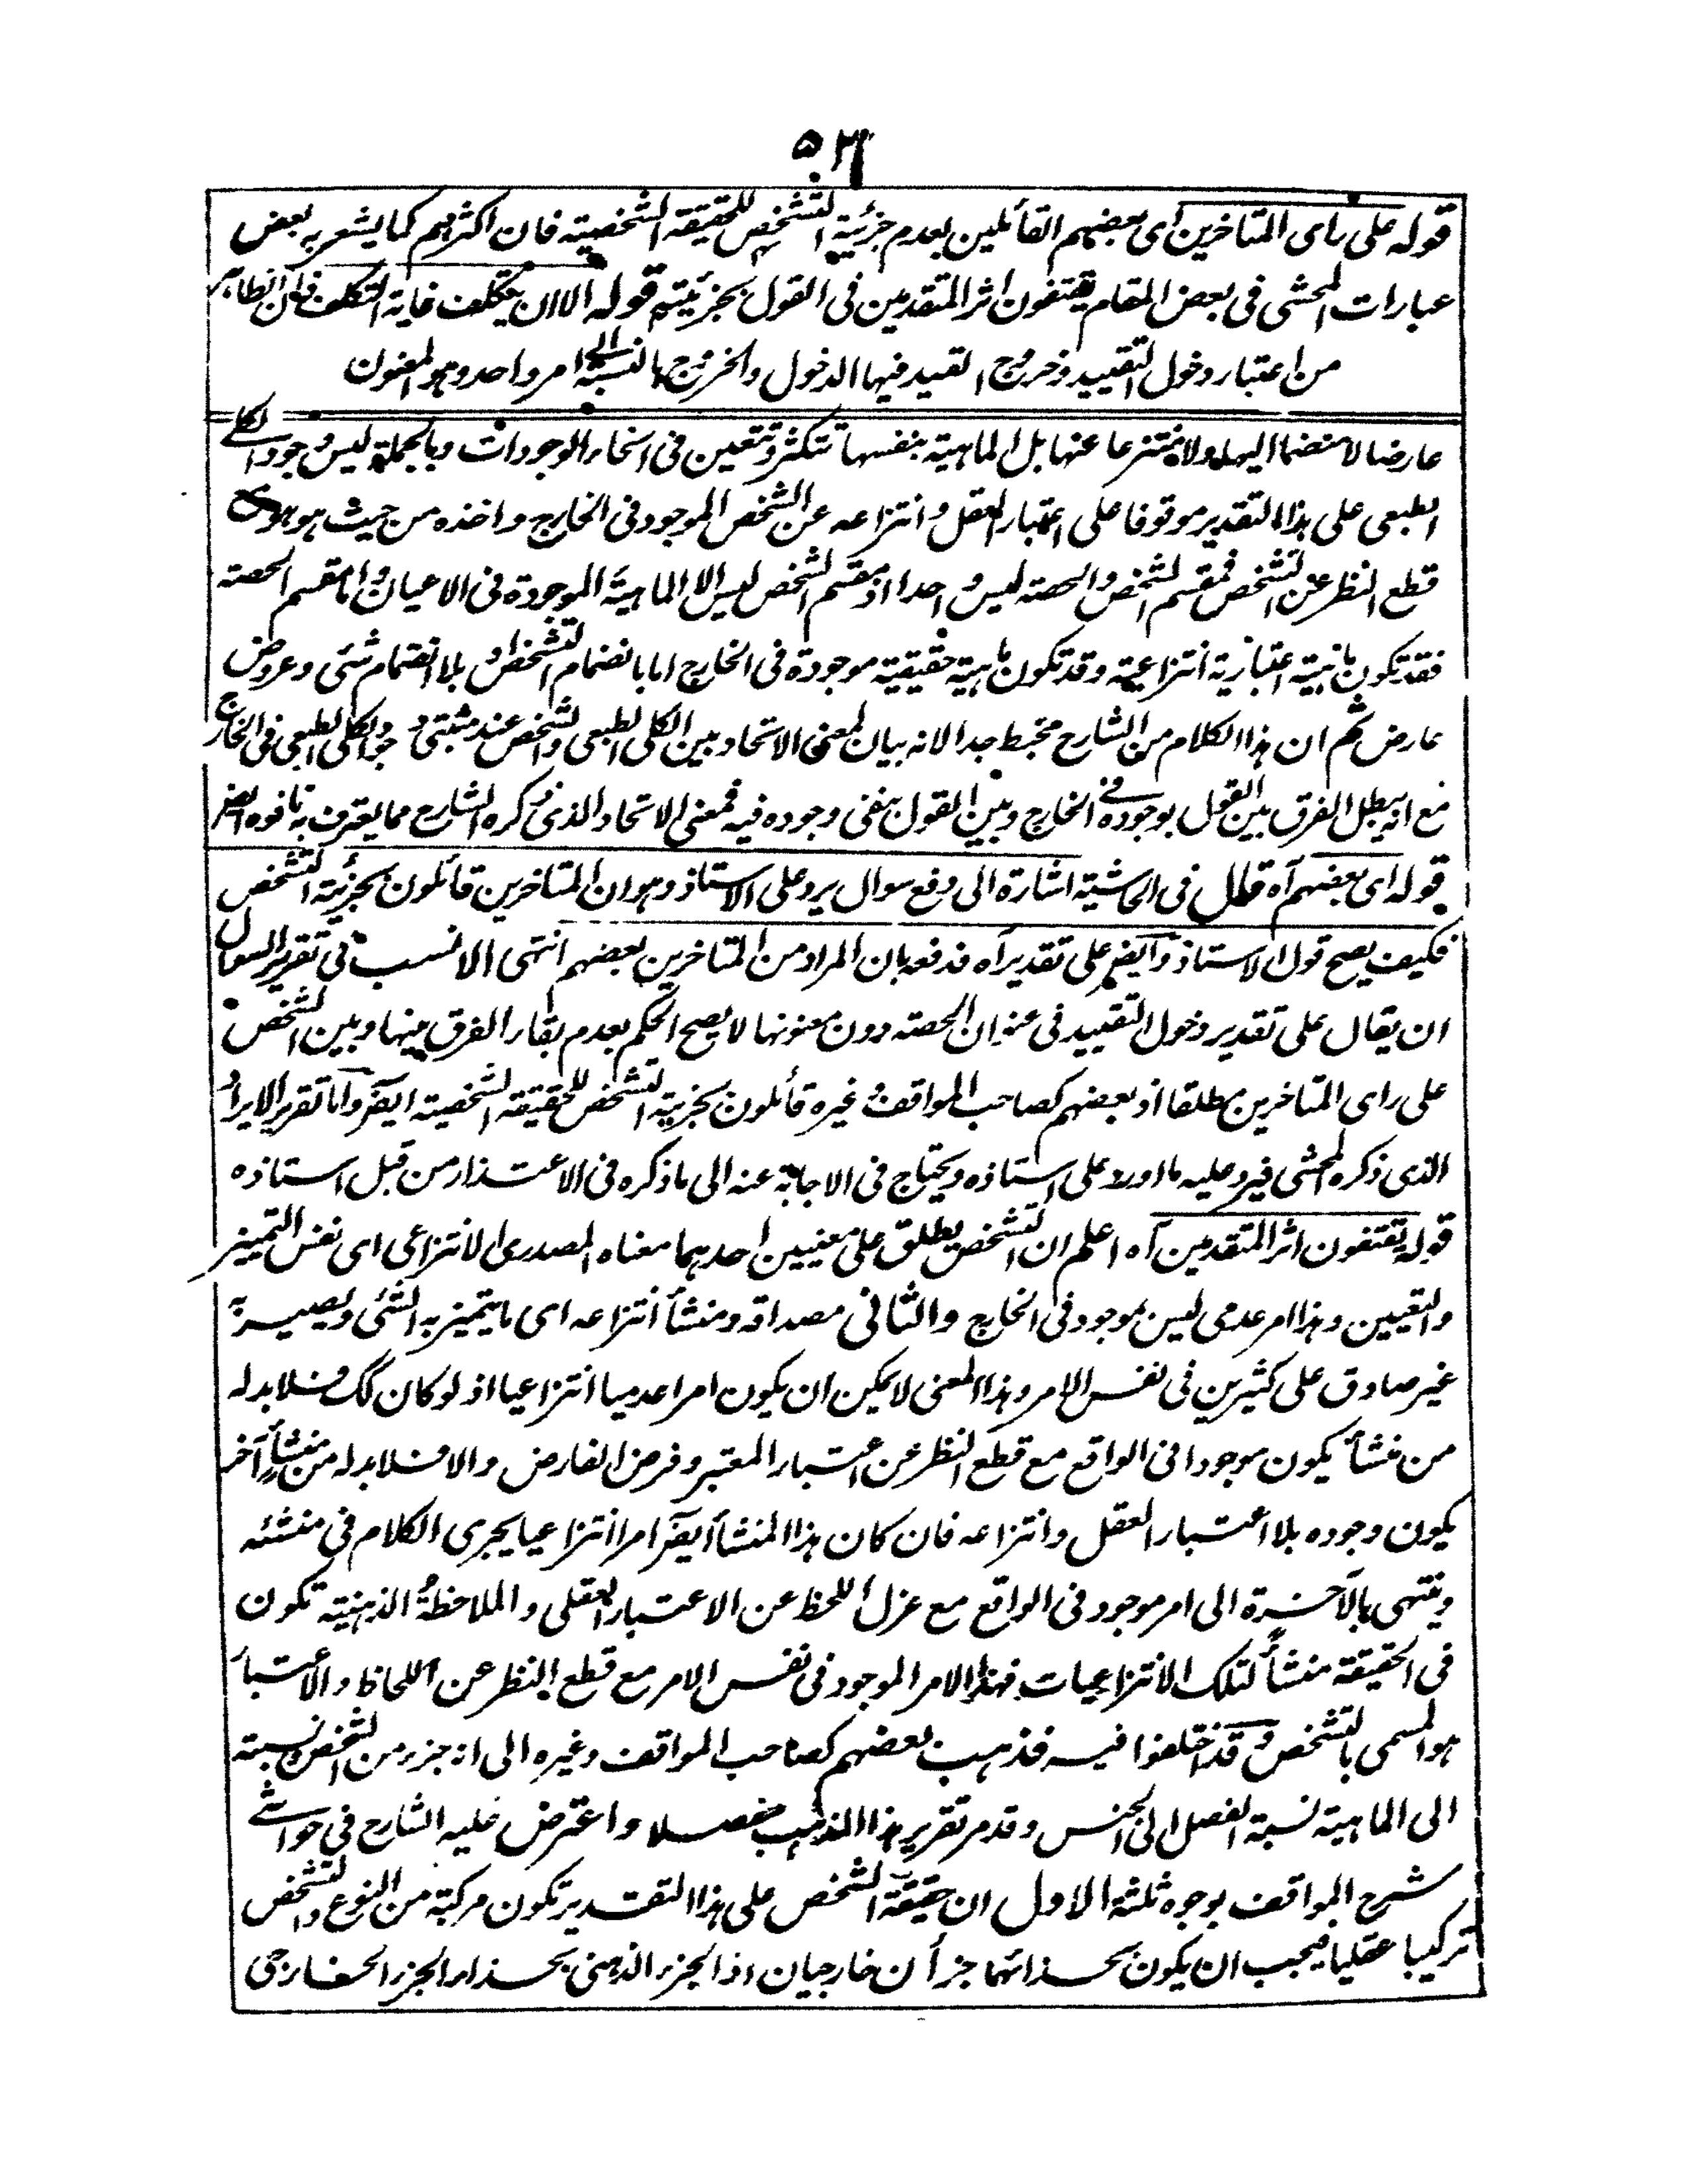 قوله على راى المتاخرين اى بعضهم القائلين بعدم جزئية التشخص للحقيقة الشخصية فان اكثرهم كما يشعر به بعض
عبارات المحشى فى بعض المقام يقتفون اثر المتقدمين فى القول بجزئيته قوله الا ان يتكلف غاية التكلف فان الظاهر
من اعتبار دخول التقييد وخروج القيد فيها الدخول والخروج بالنسبة الى امر واحد وهو المعنون
عارضا لا منضما اليها ولا منتزعا عنها بل الماهية بنفسها تتكثر وتتعين فى انحاء الوجودات وبالجملة ليس وجود الكلى
الطبعى على هذا التقدير موقوفا على اعتبار العقل وانتزاعه عن الشخص الموجود فى الخارج واخذه من حيث هو هو مع
قطع النظر عن التشخص فمقسم الشخص والحصته ليس واحدا اذ مقسم الشخص ليس الا الماهية الموجودة فى الاعيان واما مقسم الحصته
فقد تكون ماهية اعتبارية انتزاعية وقد تكون ماهية حقيقية موجودة فى الخارج اما بانضمام التشخص او بلا انضمام شئ وعروض
عارض ثم ان هذا الكلام من الشارح مختبط جدا لانه بيان لمعنى الاتحاد بين الكلى الطبعى والشخص عند مثبتى وجود الكلى الطبعى فى الخارج
مع انه يبطل الفرق بين القول بوجوده فى الخارج وبين القول بنفى وجوده فيه فمعنى الاتحاد الذى ذكره الشارح مما يعترف به نافوه ايضا
قوله اى بعضهم آه قال فى الحاشية اشارة الى دفع سوال يرد على الاستاذ وهو ان المتاخرين قائلون بجزئية التشخص
فكيف يصح قول الاستاذ وايضا على تقدير آه فدفعه بان المراد من المتاخرين بعضهم انتهى الانسب فى تقرير السوال
ان يقال على تقدير دخول التقييد فى عنوان الحصته دون معنونها لا يصح الحكم بعدم بقاء الفرق بينها وبين الشخص
على راى المتاخرين مطلقا اذ بعضهم كصاحب المواقف وغيره قائلون بجزئية التشخص للحقيقة الشخصية ايضا واما تقرير الايراد
الذى ذكره المحشى فيرد عليه ما اورد على استاذه ويحتاج فى الاجابة عنه الى ما ذكره فى الاعتذار من قبل استاذه
قوله يقتفون اثر المتقدمين آه اعلم ان التشخص يطلق على معنيين احدهما معناه المصدرى الانتزاعى اى نفس التميز
والتعيين وهذا امر عدمى ليس بموجود فى الخارج والثانى مصداقه ومنشأ انتزاعه اى ما يتميز به الشئ ويصير به
غير صادق على كثيرين فى نفس الامر وهذا المعنى لا يمكن ان يكون امرا عدميا انتزاعيا اذ لو كان كك فلا بد له
من منشأ يكون موجودا فى الواقع مع قطع النظر عن اعتبار المعتبر وفرض الفارض والا فلا بد له من منشأ آخر
يكون وجوده بلا اعتبار العقل وانتزاعه فان كان هذا المنشأ ايضا امرا انتزاعيا يجرى الكلام فى منشئه
وينتهى بالآخرة الى امر موجود فى الواقع مع عزل اللحظ عن الاعتبار العقلى والملاحظة الذهنية تكون
فى الحقيقة منشأ لتلك الانتزاعيات فهذا الامر الموجود فى نفس الامر مع قطع النظر عن اللحاظ والاعتبار
هو المسمى بالتشخص وقد اختلفوا فيه فذهب بعضهم كصاحب المواقف وغيره الى انه جزء من الشخص نسبته
الى الماهية نسبة الفصل الى الجنس وقد مر تقرير هذا المذهب مفصلا واعترض عليه الشارح فى حواشى
شرح المواقف بوجوه ثلثة الاول ان حقيقة الشخص على هذا التقدير تكون مركبة من النوع والتشخص
تركيبا عقليا فيجب ان يكون بحذائهما جزأن خارجيان اذ الجزء الذهنى بحذاء الجزء الخارجى